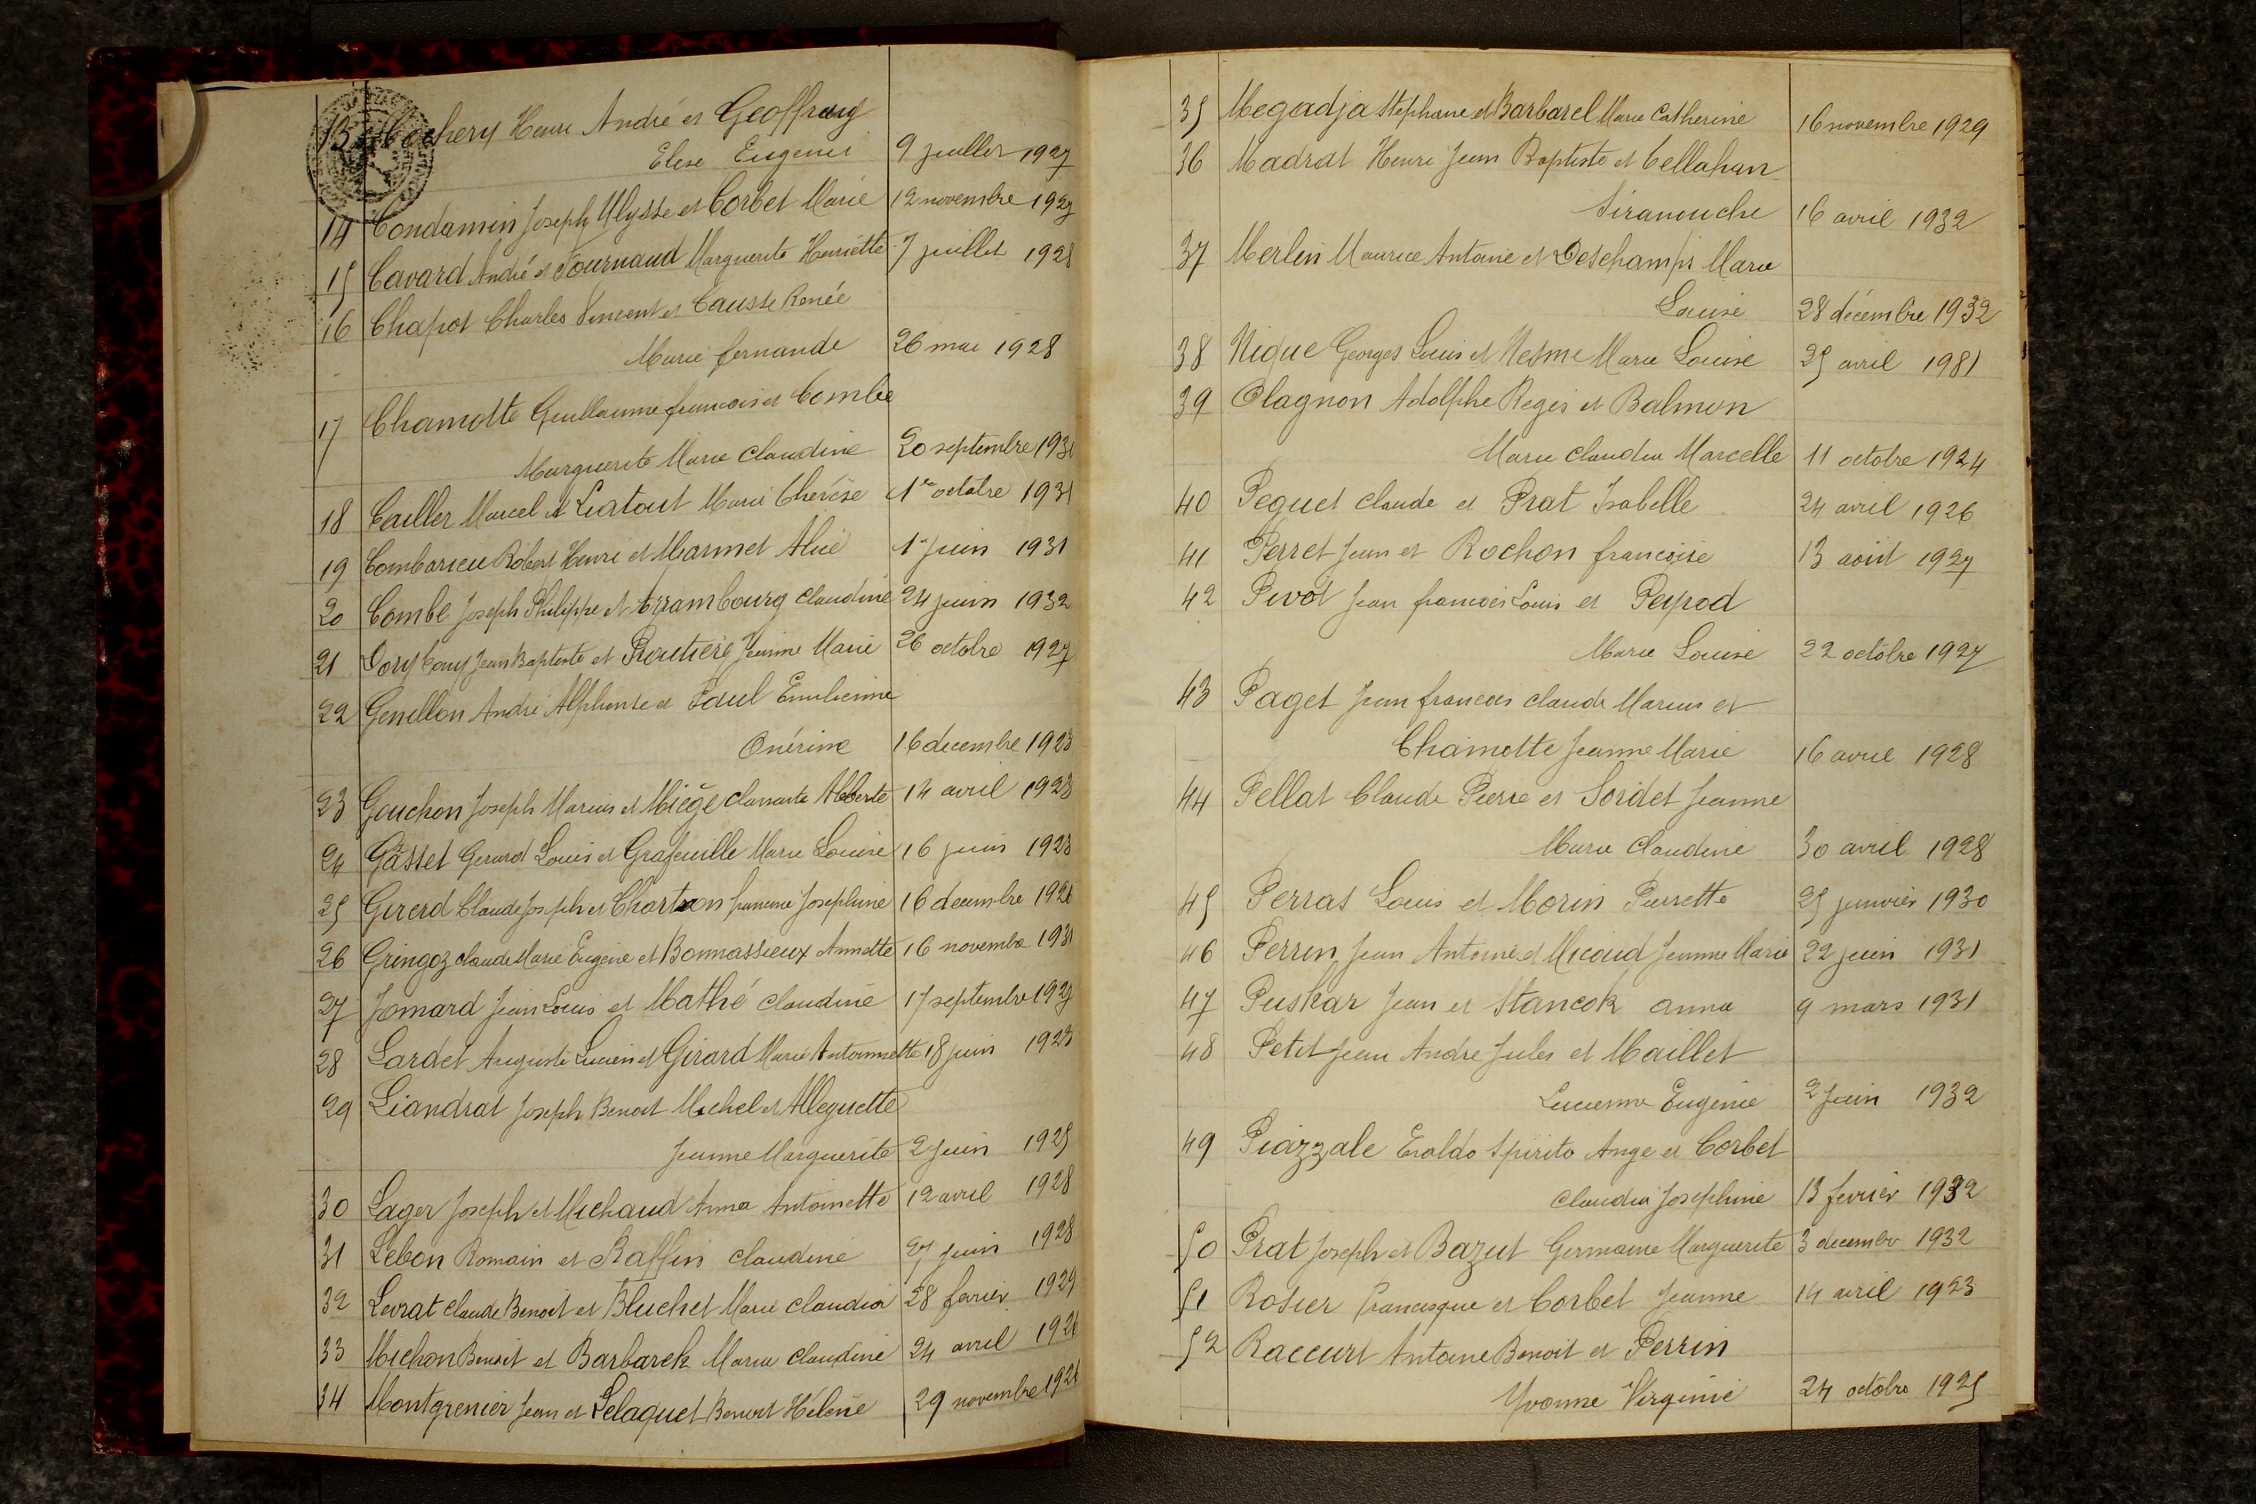 13 Cochery Henri André et Geoffray
Elise Eugenie 9 juillet 1927
14 Condamin Joseph Ulysse et Corbet Marie 12 novembre 1927
15 Cavard André et Tournaud Marguerite Henriette 7 juillet 1928
16 Chapot Charles Vincent et Causse Renée
Marie fernande 26 mai 1928
17 Chamotte Guillaume francois et Combe
Marguerite Marie Claudine 20 septembre 1930
18 Cailler Marcel et Liatout Marie Thérèse 1er octobre 1931
19 Combarieu Robert Henri et Marmet Alice 1er Juin 1931
20 Combe Joseph Philippe et Arrambourg Claudine 24 juin 1932
21 Dory Jean Baptiste et Routière Jeanne Marie 26 octobre 1927
22 Genillon André Alphonse et Paul Emilienne
Onérine 16 decembre 1923
23 Gouchon Joseph Marius et Miège Alberte 14 avril 1923
24 Gasset Gerard Louis et Grafeuille Marie Louise 16 juin 1923
25 Girerd Claude Joseph et Chartron Josephine 16 decembre 1926
26 Gringoz claude Marie Eugène et Bonnassieux Annette 16 novembre 1931
27 Jomard Jean Louis et Mathé claudine 17 septembre 1927
28 Lardet Auguste Lucien et Girard Marie Antoinette 18 juin 1923
29 Liandrat Joseph Benoit Michel et Alleguette
Jeanne Marguerite 2 Juin 1925
30 Lager Joseph et Michaud Anna Antoinette 12 avril 1928
31 Lebon Romain et Raffin claudine 27 juin 1928
32 Levrat claude Benoit et Bluchet Marie claudia 28 fevrier 1929
33 Michon Benoit et Barbarek Maria claudine 24 avril 1926
34 Montgrenier Jean et Lelaquet Benoit Hélène 29 novembre 1928
35 Megadja Stephane et Barbarel Marie Catherine 16 novembre 1929
36 Madrat Henri Jean Baptiste et Cellahan
Siranouche 16 avril 1932
37 Merlin Maurice Antoine et Deschamps Marie
Louise 28 décembre 1932
38 Nique Georges Louis et Nesme Marie Louise 25 avril 1981
39 Olagnon Adolphe Regis et Balmon
Marie Claudia Marcelle 11 octobre 1924
40 Pequet Claude et Prat Isabelle 24 avril 1926
41 Perret Jean et Rochon francoise 13 août 1927
42 Pivot Jean francois Louis et Peyrod
Marie Louise 22 octobre 1927
43 Paget Jean francois claude Marius et
Chamotte Jeanne Marie 16 avril 1928
44 Pellat Claude Pierre et Sordet Jeanne
Marie Claudine 30 avril 1928
45 Perras Louis et Morin Pierrette 25 janvier 1930
46 Perrin Jean Antoine et Micoud Jeanne Marie 22 juin 1931
47 Puskar Jean et Stancok anna 9 mars 1931
48 Petit Jean André Jules et Maillet
Lucienne Eugénie 2 Juin 1932
49 Piazzale Eraldo Spirito Ange et Corbet
claudia Josephine 13 fevrier 1932
50 Prat Joseph et Bazut Germaine Marguerite 3 decembre 1932
51 Rosier Francisque et Corbet Jeanne 14 avril 1923
52 Raccurt Antoine Benoit et Perrin
Yvonne Virginie 24 octobre 1925